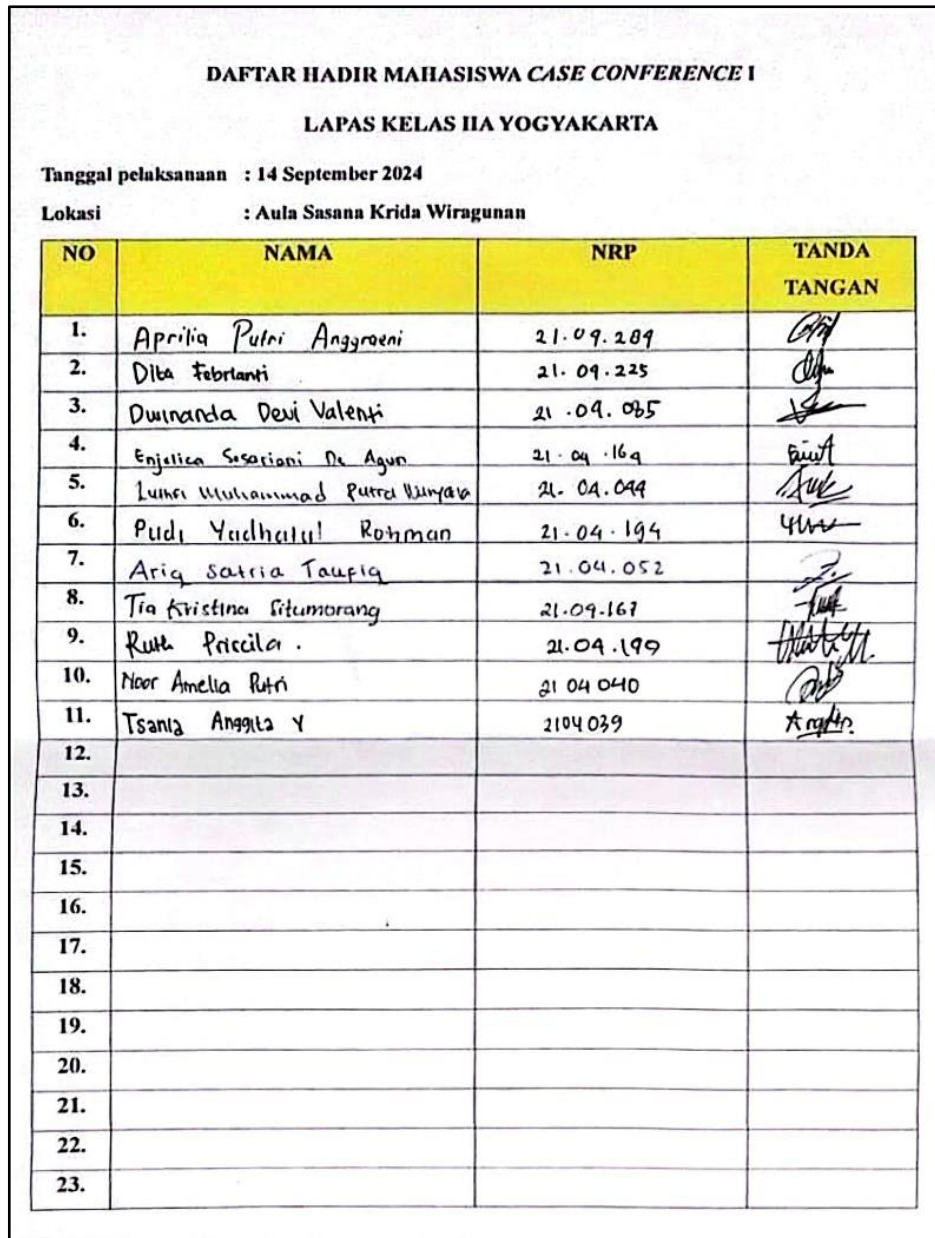 DAFTAR HADIR MAHASISWA CASE CONFERENCE I
LAPAS KELAS IIA YOGYAKARTA
Tanggal pelaksanaan : 14 September 2024
Lokasi : Aula Sasana Krida Wiragunan
NO NAMA NRP TANDA TANGAN
1. Aprilia Putri Anggraeni 21.04.289
2. Dita Febrianti 21.04.225
3. Dwinanda Devi Valenti 21.04.085
4. Enjelica Sosoriani De Agun 21.04.169
5. Muhammad Putra 21.04.044
6. Pudi Rohman 21.04.194
7. Ariq Satria Taufiq 21.04.052
8. Tia Kristina Situmorang 21.04.167
9. Ruth Priscila. 21.04.199
10. Noor Amelia Putri 21 04 040
11. Tsania Anggita Y 2104039
12.
13.
14.
15.
16.
17.
18.
19.
20.
21.
22.
23.